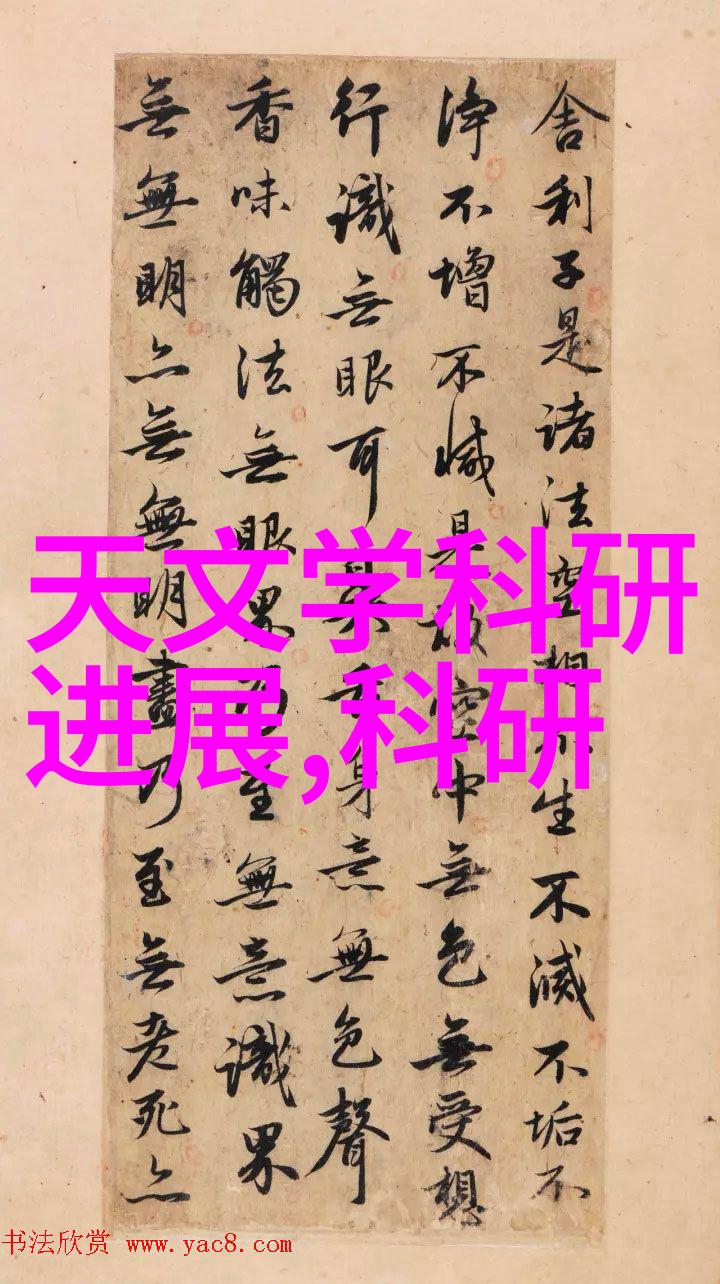 舍利子是諸法空相不生不滅不垢不
淨不增不減是故空中無色無受想
行識無眼耳鼻舌身意無色聲
香味觸法無眼界乃至無意識界
無無明亦無無明盡乃至無老死亦
天文学科研
进展,科研
书法欣赏 www.yac8.com